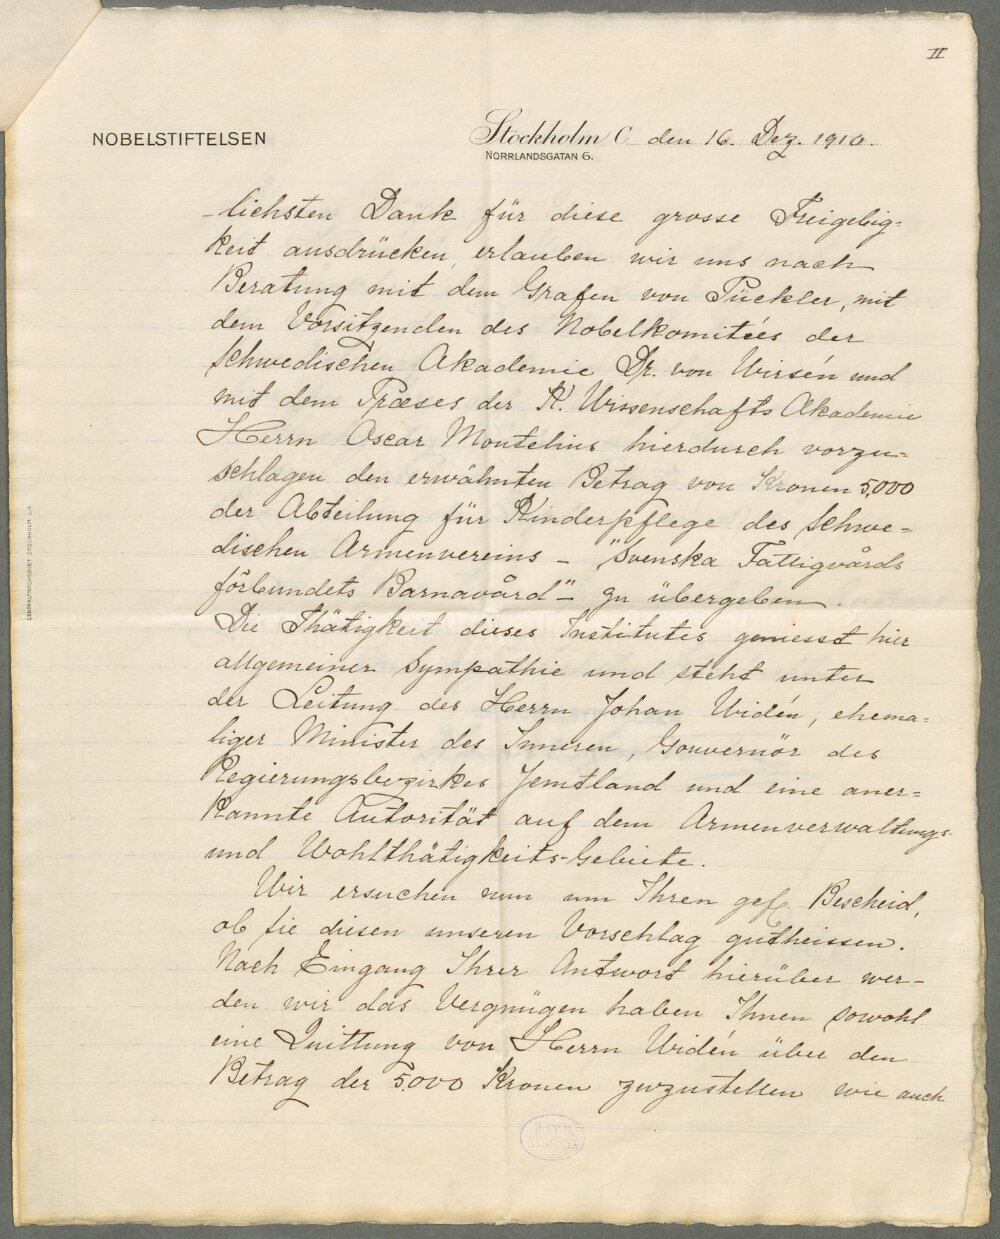 II
NOBELSTIFTELSEN
Stockholm C. den 16. Dez. 1910.
NORRLANDSGATAN 6.
-lichsten Dank für diese grosse Freigebig-
keit ausdrücken, erlauben wir uns nach
Beratung mit dem Grafen von Pückler, mit
dem Vorsitzenden des Nobelkomitées der
Schwedischen Akademie Dr. von Wirsén und
mit dem Præses der K. Wissenschafts Akademie
Herrn Oscar Montelius hierdurch vorzu-
schlagen den erwähnten Betrag von Kronen 5,000
der Abteilung für Kinderpflege des Schwe-
dischen Armenvereins - "Svenska Fattigvårds
förbundets Barnavård" - zu übergeben.
Die Thätigkeit dieses Institutes geniesst hier
allgemeiner Sympathie und steht unter
der Leitung des Herrn Johan Widén, ehema-
liger Minister des Inneren, Gouvernör des
Regierungsbezirkes Jemtland und eine aner-
kannte Autorität auf dem Armenverwaltungs-
und Wohlthätigkeits-Gebiete.
Wir ersuchen nun um Ihren gefl. Bescheid,
ob Sie diesen unseren Vorschlag gutheissen.
Nach Eingang Ihrer Antwort hierüber wer-
den wir das Vergnügen haben Ihnen sowohl
eine Quittung von Herrn Widén über den
Betrag der 5.000 Kronen zuzustellen wie auch